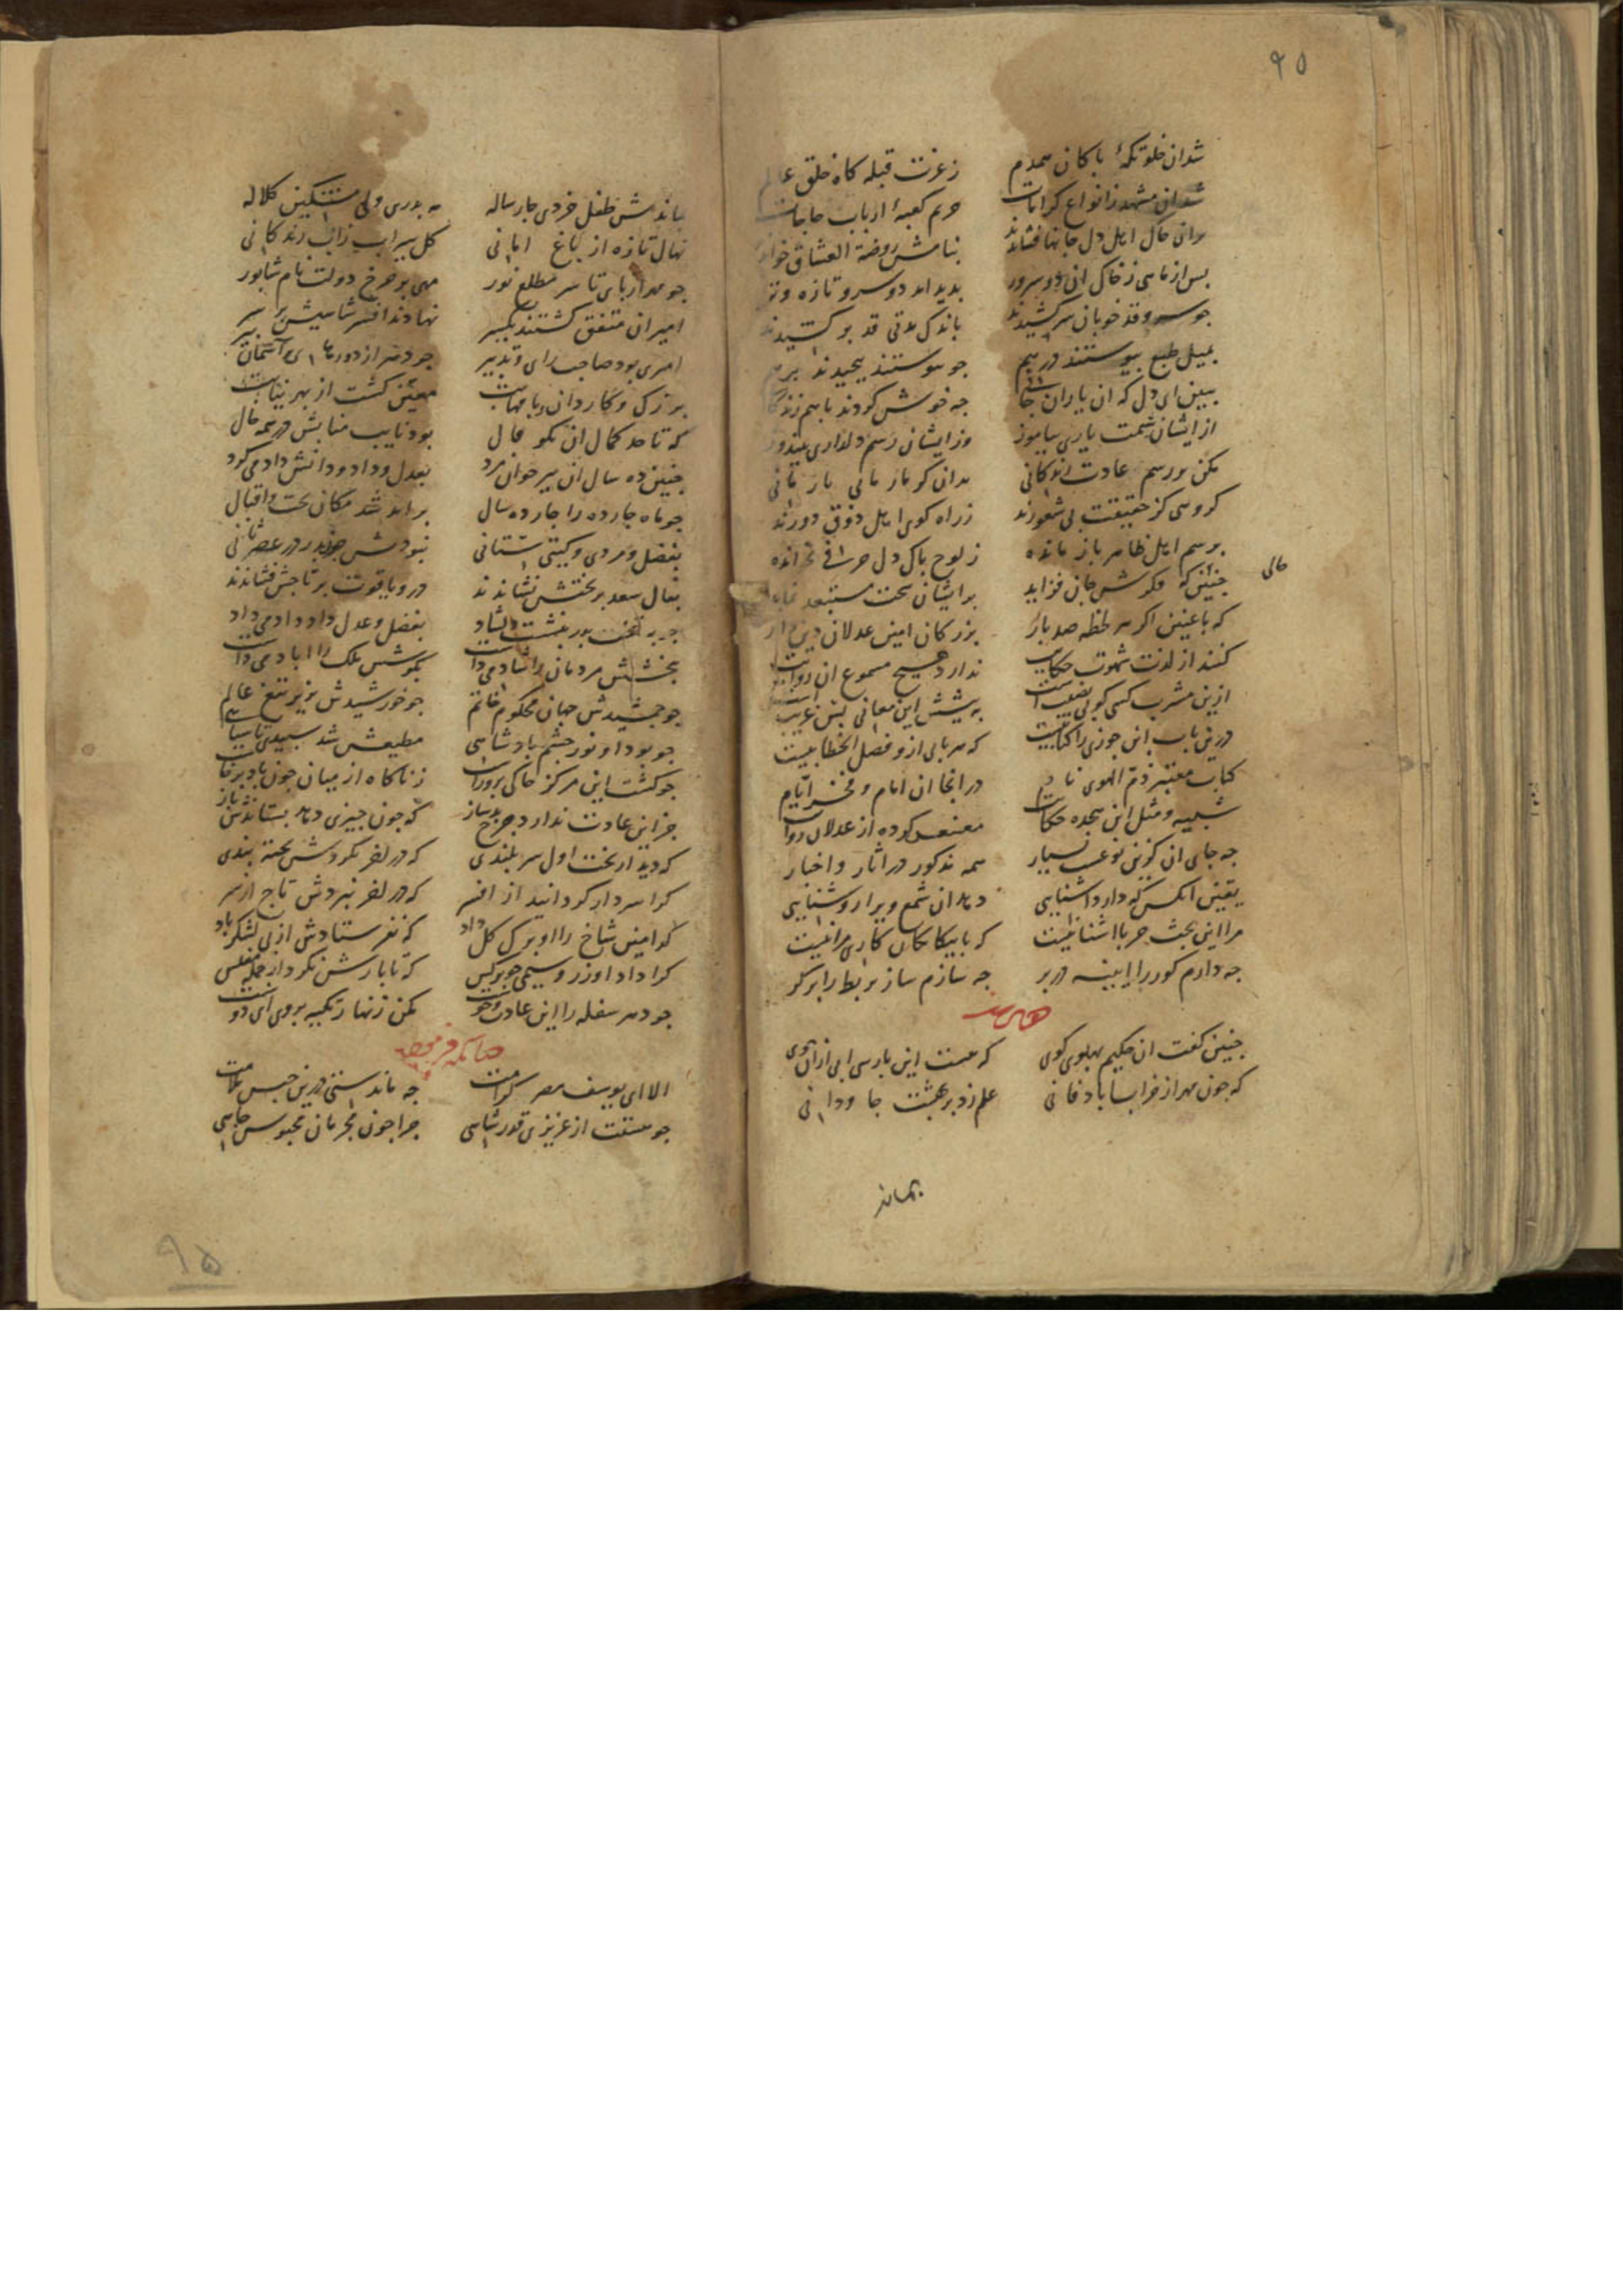 ۹۵
شد ان خلوتگهٔ باکان همدم زعزت قبله کاه خلق عالم
شد ان مشهد زانواع کرامات حریم کعبهٔ ارباب حاجات
بران خاک اهل دل جانها فشاندند بنامش روضة العشاق خواندند
بس از ماهی زخاک ان دو سرور بدید امد دو سرو تازه وتر
جو سرو قد خوبان سر کشیدند باندک مدتی قد بر کشیدند
بمیل طبع بیوستند درهم جو بیوستند بیجیدند برهم
ببین ای دل که ان یاران جانی جه خوش کردند باهم زندکانی
از ایشان شمت یاری بیاموز وز ایشان رسم دلداری بیندوز
مکن بر رسم عادت
کروهی کز حقیقت بی شعورند زراه کوی اهل ذوق دورند
برسم اهل ظاهر باز مانده زلوح باک دل حرفی نخوانده
حالی
جنین که فکرش جان فزاید برایشان سخت مستبعد نماید
که با عینین اکر هر لحظه صد بار بزرکان امین عدلان دین دار
کنند از لذت شهوت حکایت ندارد هیچ مسموع ان روایت
ازین مشرب کسی کو بی نصیب است به بیشش این معانی بس غریب است
درین باب ابن جوزی را کتابیست که هر بابی ازو فصل الخطابیست
کتاب معتبر ذم الهوی نام در انجا ان امام و فخر ایام
شبیه و مثل این هجده حکایت معنعن کرده از عدلان روایت
جه جای ان کزین نوعست بسیار همه مذکور در اثار و اخبار
یقین انکس که دارد اشنایی دهد ان شمع ویرا روشنایی
مرا این بحث جز با اشنا نیست که با بیکانکان کاری مرا نیست
جه دارم کور را ایینه در بر جه سازم ساز بربط را بر کر
جنین کفت ان حکیم بهلوی کوی که هست این بارسی ابی ازان جوی
که جون مهر از خراباباد فانی علم زد بر بهشت جاودانی
بماند
بماندش طفل خردی جار ساله مه بدری ولی مشکین کلاله
نهال تازه از باغ امانی کل سیراب زاب زندکانی
جو مه از بای تا سر مطلع نور مهی بر جرخ دولت نام شابور
امیران متفق کشتند یکسر نهادند افسر شاهیش بر سر
امیری بود صاحب رای و تدبیر
بزرک و کاردان و با مهابت معین کشت از بهر نیابت
که تا حد کمال ان نکو فال بود نایب منابش در همه حال
جنین ده سال ان بیر جوان مرد بعدل و داد و دانش داد می کرد
جو ماه جارده را جارده سال بر امد شد مکان تخت و اقبال
بفضل و مردی و کیتی ستانی نبودش جون بدر در عصر ثانی
بفال سعد بر تختش نشاندند در و یاقوت بر تاجش فشاندند
جو بر تخت بدر بنشست دلشاد بفضل و عدل داد داد می داد
ببخشش مردمان را شاد می داشت بکوشش ملک را اباد می داشت
جو جمشیدش جهان محکوم خاتم جو خورشیدش بزیر تیغ عالم
جو بود او نور جشم بادشاهی مطیعش شد سبیدی تا سیاهی
جو کشت این مرکز خاکی بر او راست زناکاه از میان جون باد برخاست
جز این عادت ندارد جرخ بدساز که جون جیزی دهد بستاندش باز
که دید از تخت اول سر بلندی که در اخر نکردش تخته بندی
کرا سردار کردانید از افسر که در اخر نبردش تاج از سر
کدامین شاخ را او برک کل داد که نفرستادش از بی لشکر باد
کرا داد او زر و سیمی جو نرکس که تا بارش نکرد از جمله مفلس
جو دهر سفله را این عادت و خوست مکن زنهار تکیه بر وی ای دوست
الا ای یوسف مصر کرامت جه ماندستی درین حبس ملامت
جو هستت از عزیزی قدر شاهی جرا جون مجرمان محبوس جاهی
۹۵